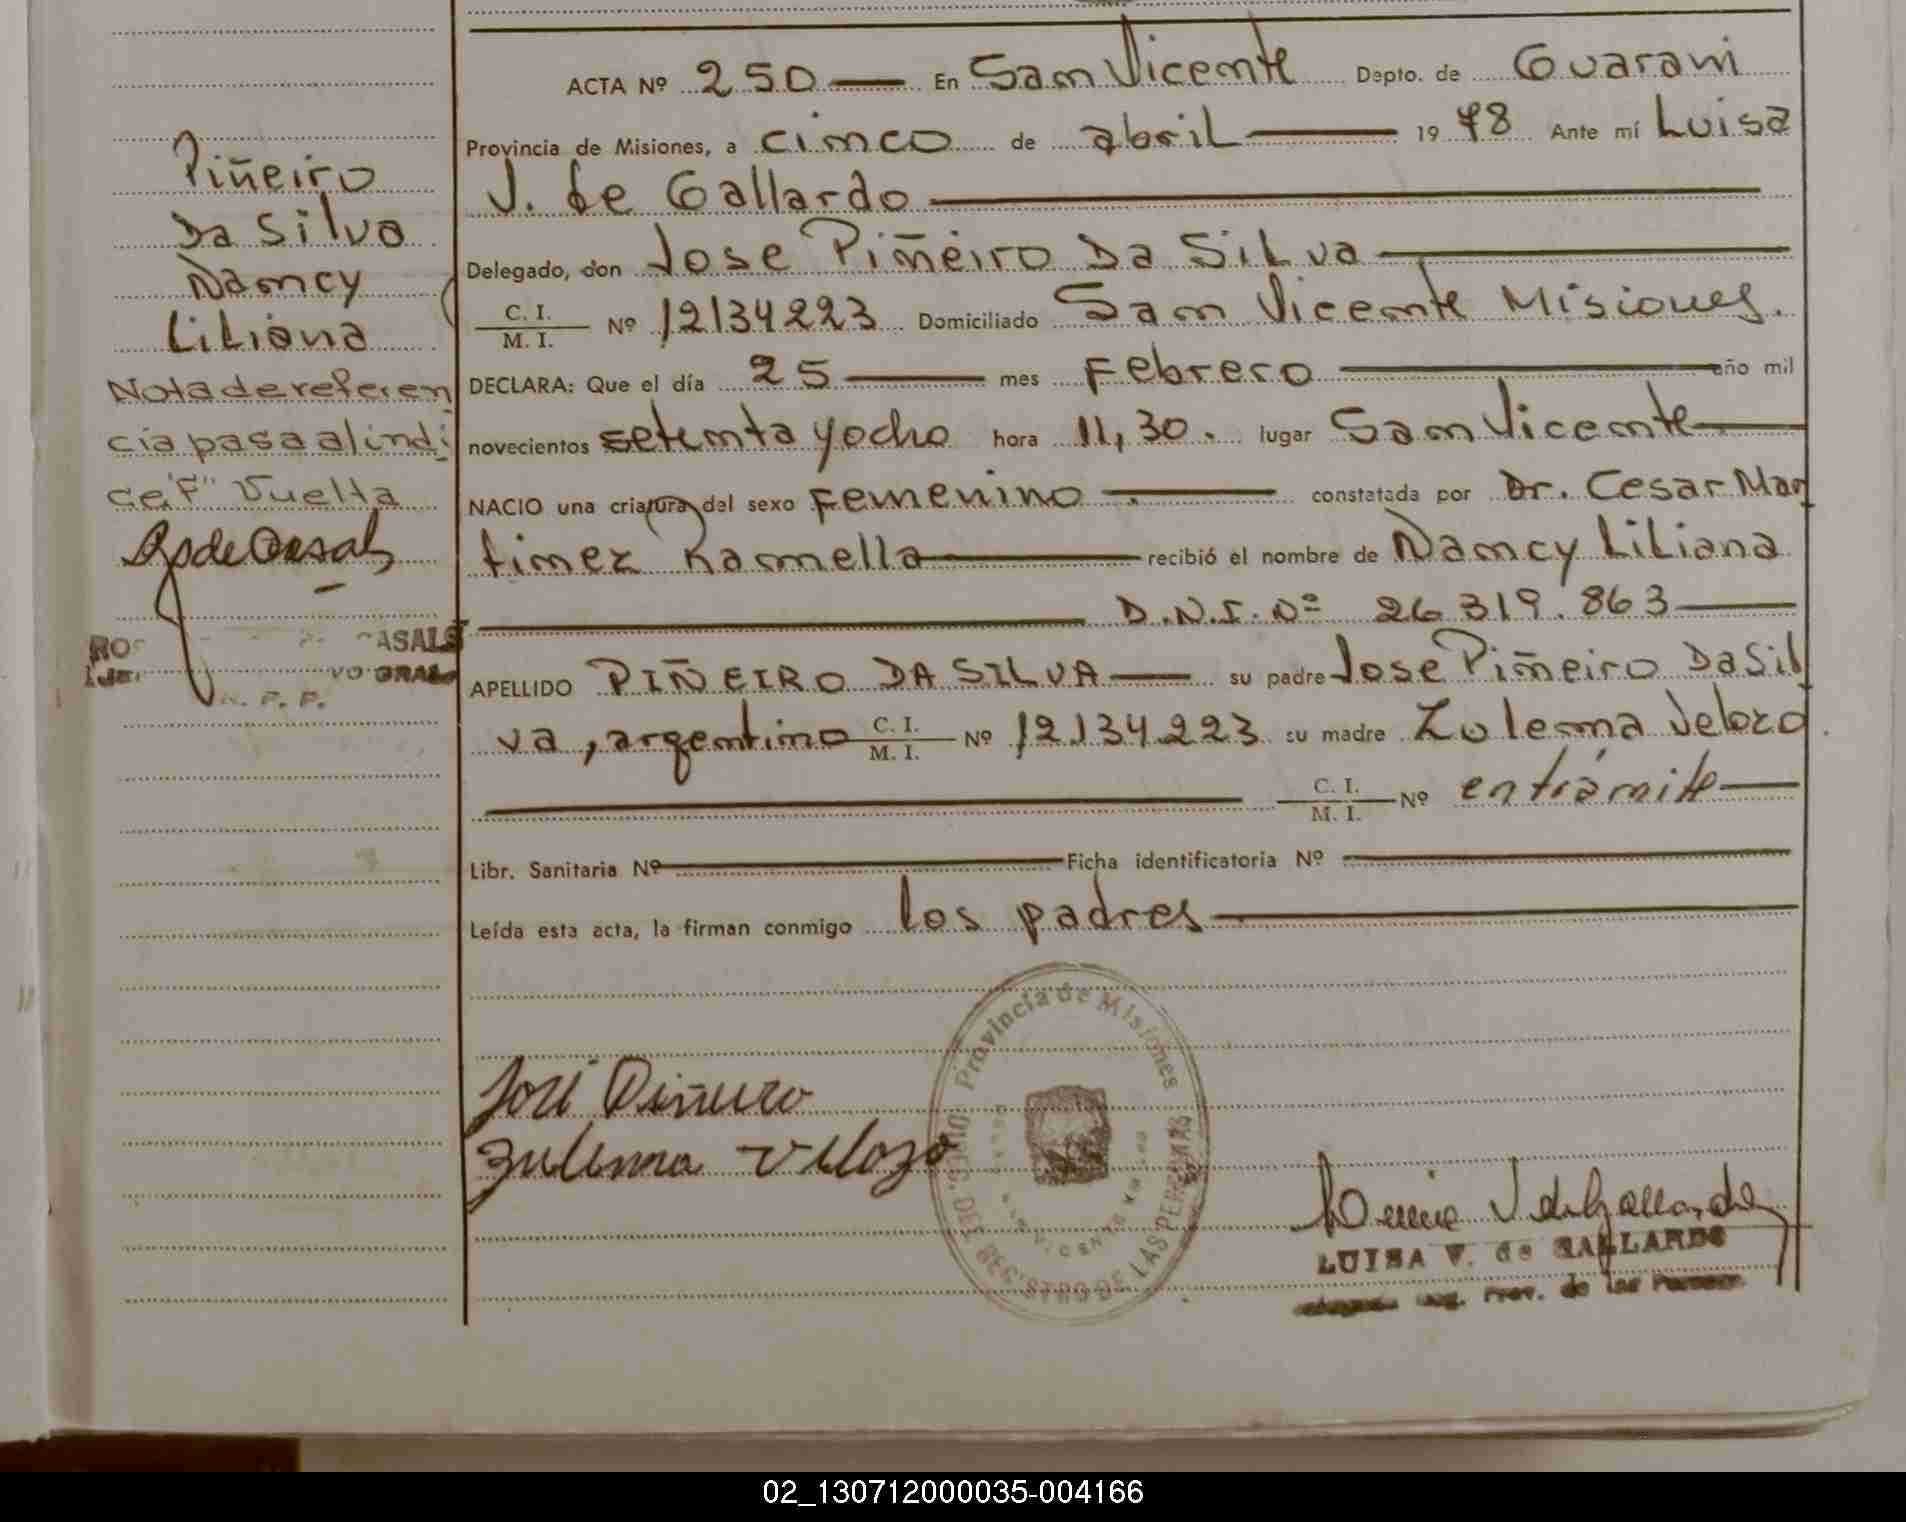 Piñeiro
Da Silva
Nancy
Liliana
Nota de referen
cia pasa al indi
ce "F" Vuelta
ACTA Nº 250 — En San Vicente Depto. de Guarani
Provincia de Misiones, a cinco de abril — 1978 Ante mí Luisa
V. de Gallardo
Delegado, don Jose Piñeiro Da Silva
C. I. / M. I. Nº 12134223 Domiciliado San Vicente Misiones.
DECLARA: Que el día 25 — mes Febrero — año mil
novecientos setenta y ocho hora 11,30. lugar San Vicente
NACIO una criatura del sexo Femenino — constatada por Dr. Cesar Mar
tinez Ramella — recibió el nombre de Nancy Liliana
D.N.I. Nº 26.319.863
APELLIDO PIÑEIRO DA SILVA — su padre Jose Piñeiro Da Sil
va, argentino C. I. / M. I. Nº 12134223 su madre Zulema Velozo.
C. I. / M. I. Nº en trámite
Libr. Sanitaria Nº — Ficha identificatoria Nº
Leída esta acta, la firman conmigo los padres
José Piñeiro
Zulema Velozo
Provincia de Misiones
REGISTRO DE LAS PERSONAS
Luisa V de Gallardo
LUISA V. de GALLARDO
Prov. de las Personas
02_130712000035-004166